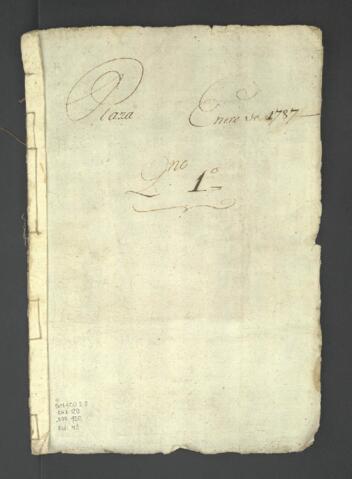 Plaza Enero de 1787
Qno 1º